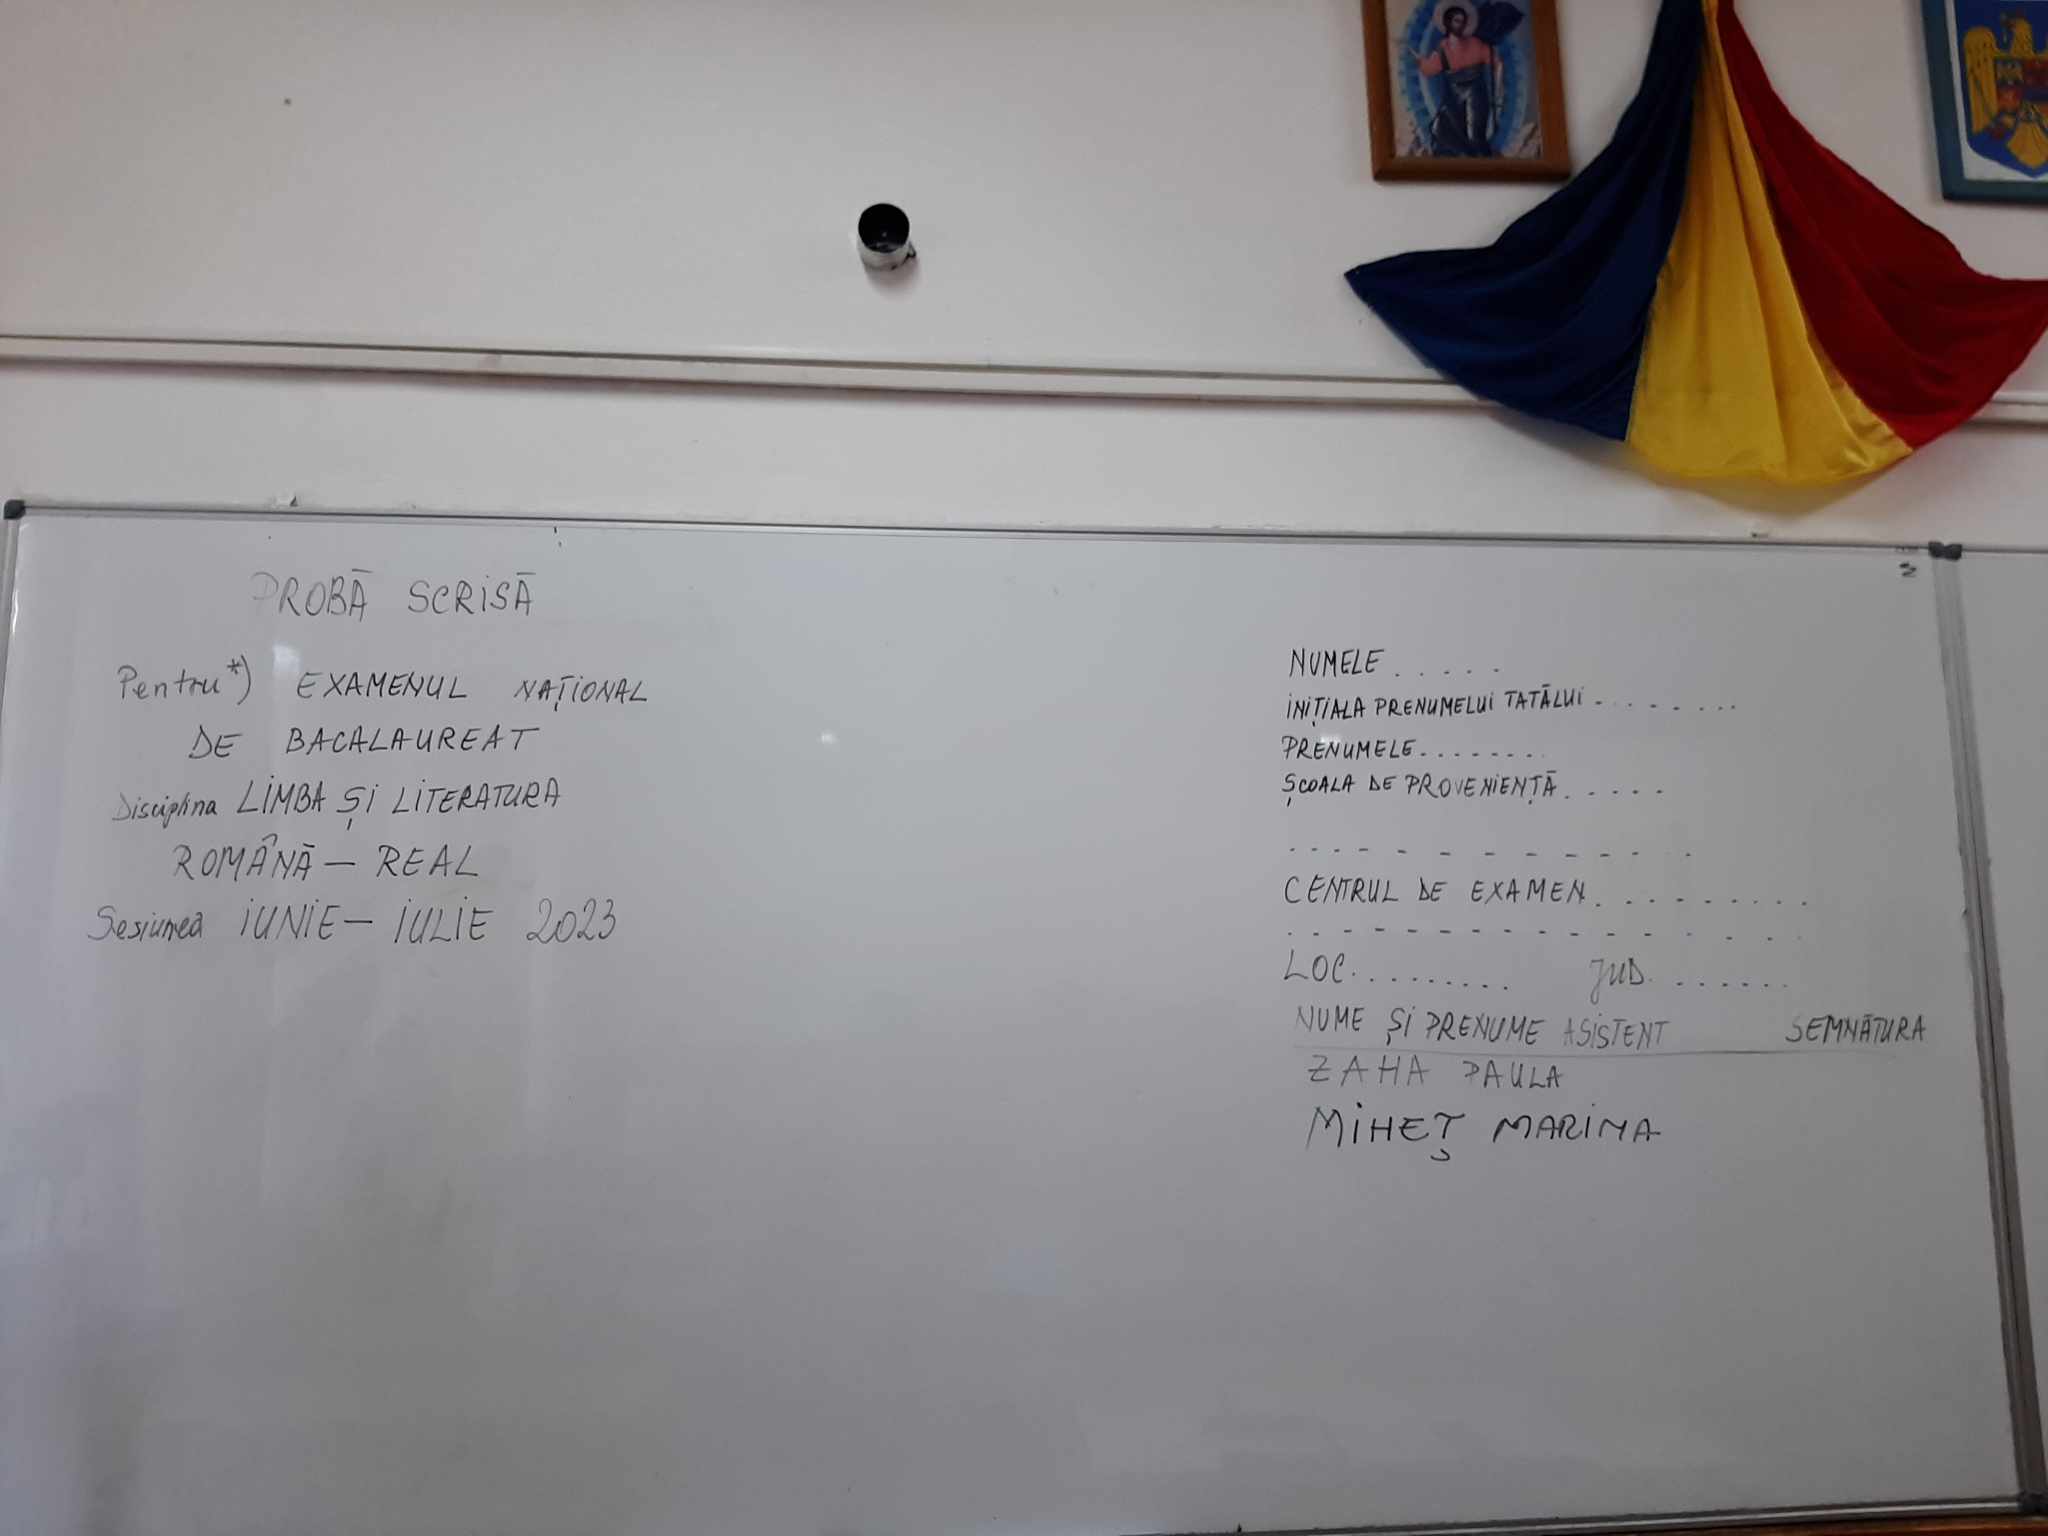 PROBĂ SCRISĂ
Pentru*) EXAMENUL NAȚIONAL
DE BACALAUREAT
Disciplina LIMBA ȘI LITERATURA
ROMÂNĂ — REAL
Sesiunea IUNIE — IULIE 2023
NUMELE . . . . .
INIȚIALA PRENUMELUI TATĂLUI . . . . . . . .
PRENUMELE . . . . . . . .
ȘCOALA DE PROVENIENȚĂ . . . . .
. . . . - - - - - - - - .
CENTRUL DE EXAMEN . . . . . . . . .
. - - - - - - - - - - - - .
LOC. . . . . . . . . JUD. . . . . . .
NUME ȘI PRENUME ASISTENT SEMNĂTURA
ZAHA PAULA
MIHEȚ MARINA